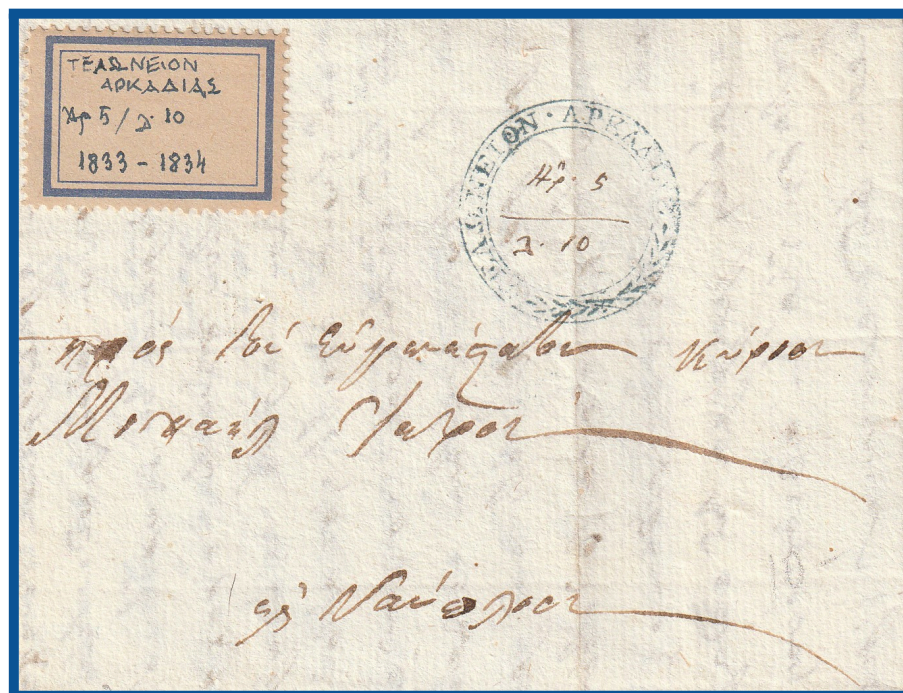 ΤΕΛΩΝΕΙΟΝ
ΑΡΚΑΔΙΑΣ
Αρ 5 / λ. 10
1833 - 1834
ΤΕΛΩΝΕΙΟΝ · ΑΡΚΑΔΙΑΣ
Αρ. 5
λ. 10
πρός τον Ευγενέστατον κύριον
Μιχαήλ Ιατρον
εις Ναύπλιον
10